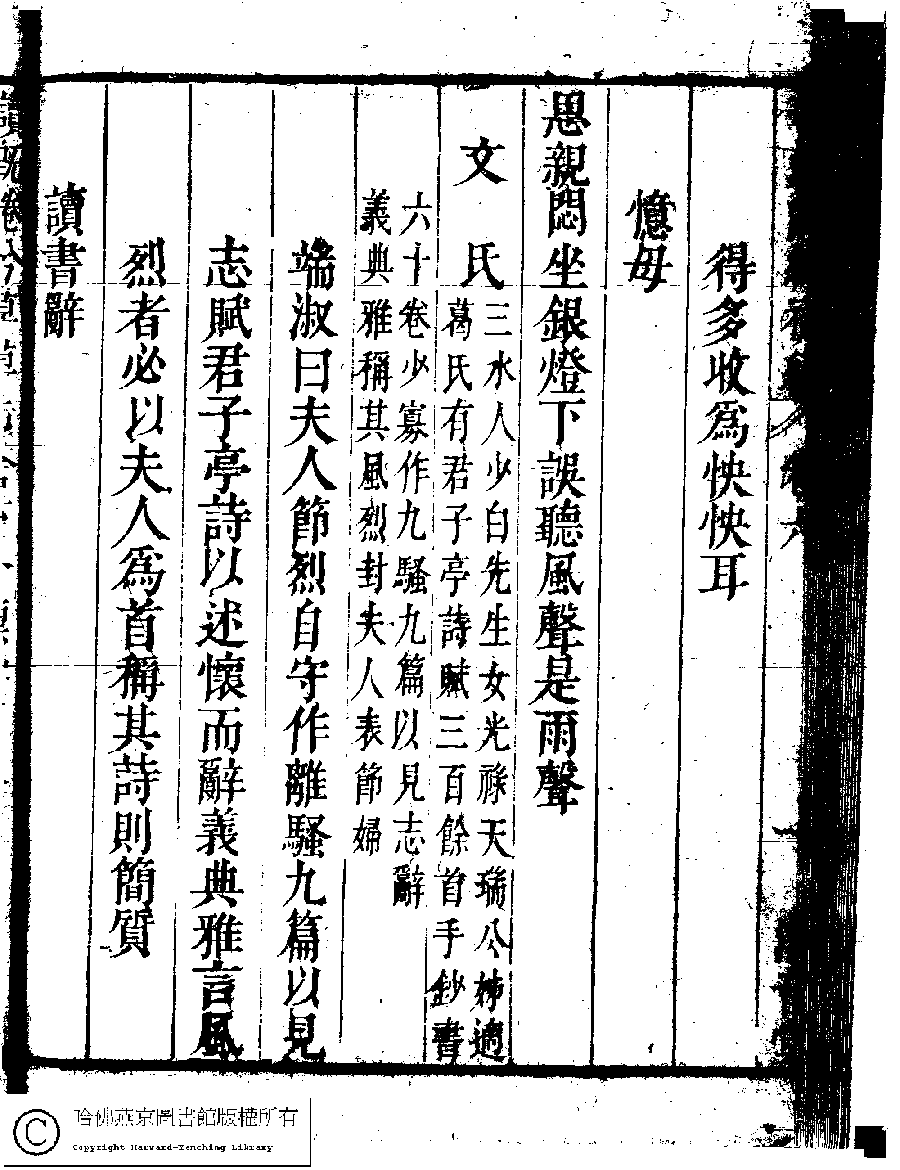 得多收爲怏怏耳
憶母
思親悶坐銀燈下誤聽風聲是雨聲
文氏
三水人少白先生女光祿天瑞公姊適
葛氏有君子亭詩賦三百餘首手鈔書
六十卷少寡作九騷九篇以見志辭
義典雅稱其風烈封夫人表節婦
端淑曰夫人節烈自守作離騷九篇以見
志賦君子亭詩以述懷而辭義典雅言風
烈者必以夫人爲首稱其詩則簡質
讀書辭
哈佛燕京圖書館版權所有
Copyright Harvard-Yenching Library